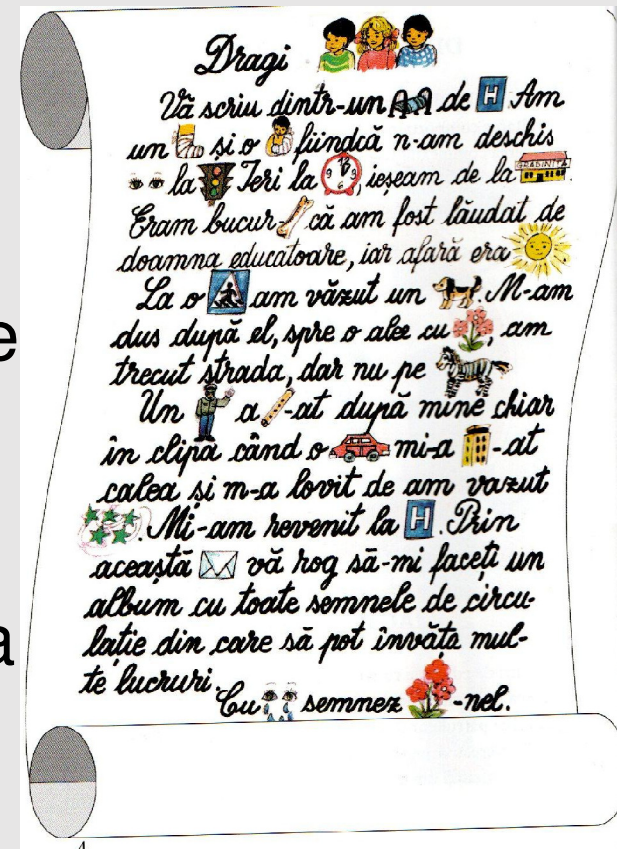 Dragi
Vă scriu dintr-un de H Am
un și o fiindcă n-am deschis
la Ieri la, ieșeam de la GRĂDINIȚA.
Eram bucur că am fost lăudat de
doamna educatoare, iar afară era
La o am văzut un. M-am
dus după el, spre o alee cu, am
trecut strada, dar nu pe
Un a -at după mine chiar
în clipa când o mi-a -at
calea și m-a lovit de am vazut
. Mi-am revenit la H. Prin
această vă rog să-mi faceți un
album cu toate semnele de circu-
lație din care să pot învăța mul-
te lucruri.
Cu semnez -nel.
e
a